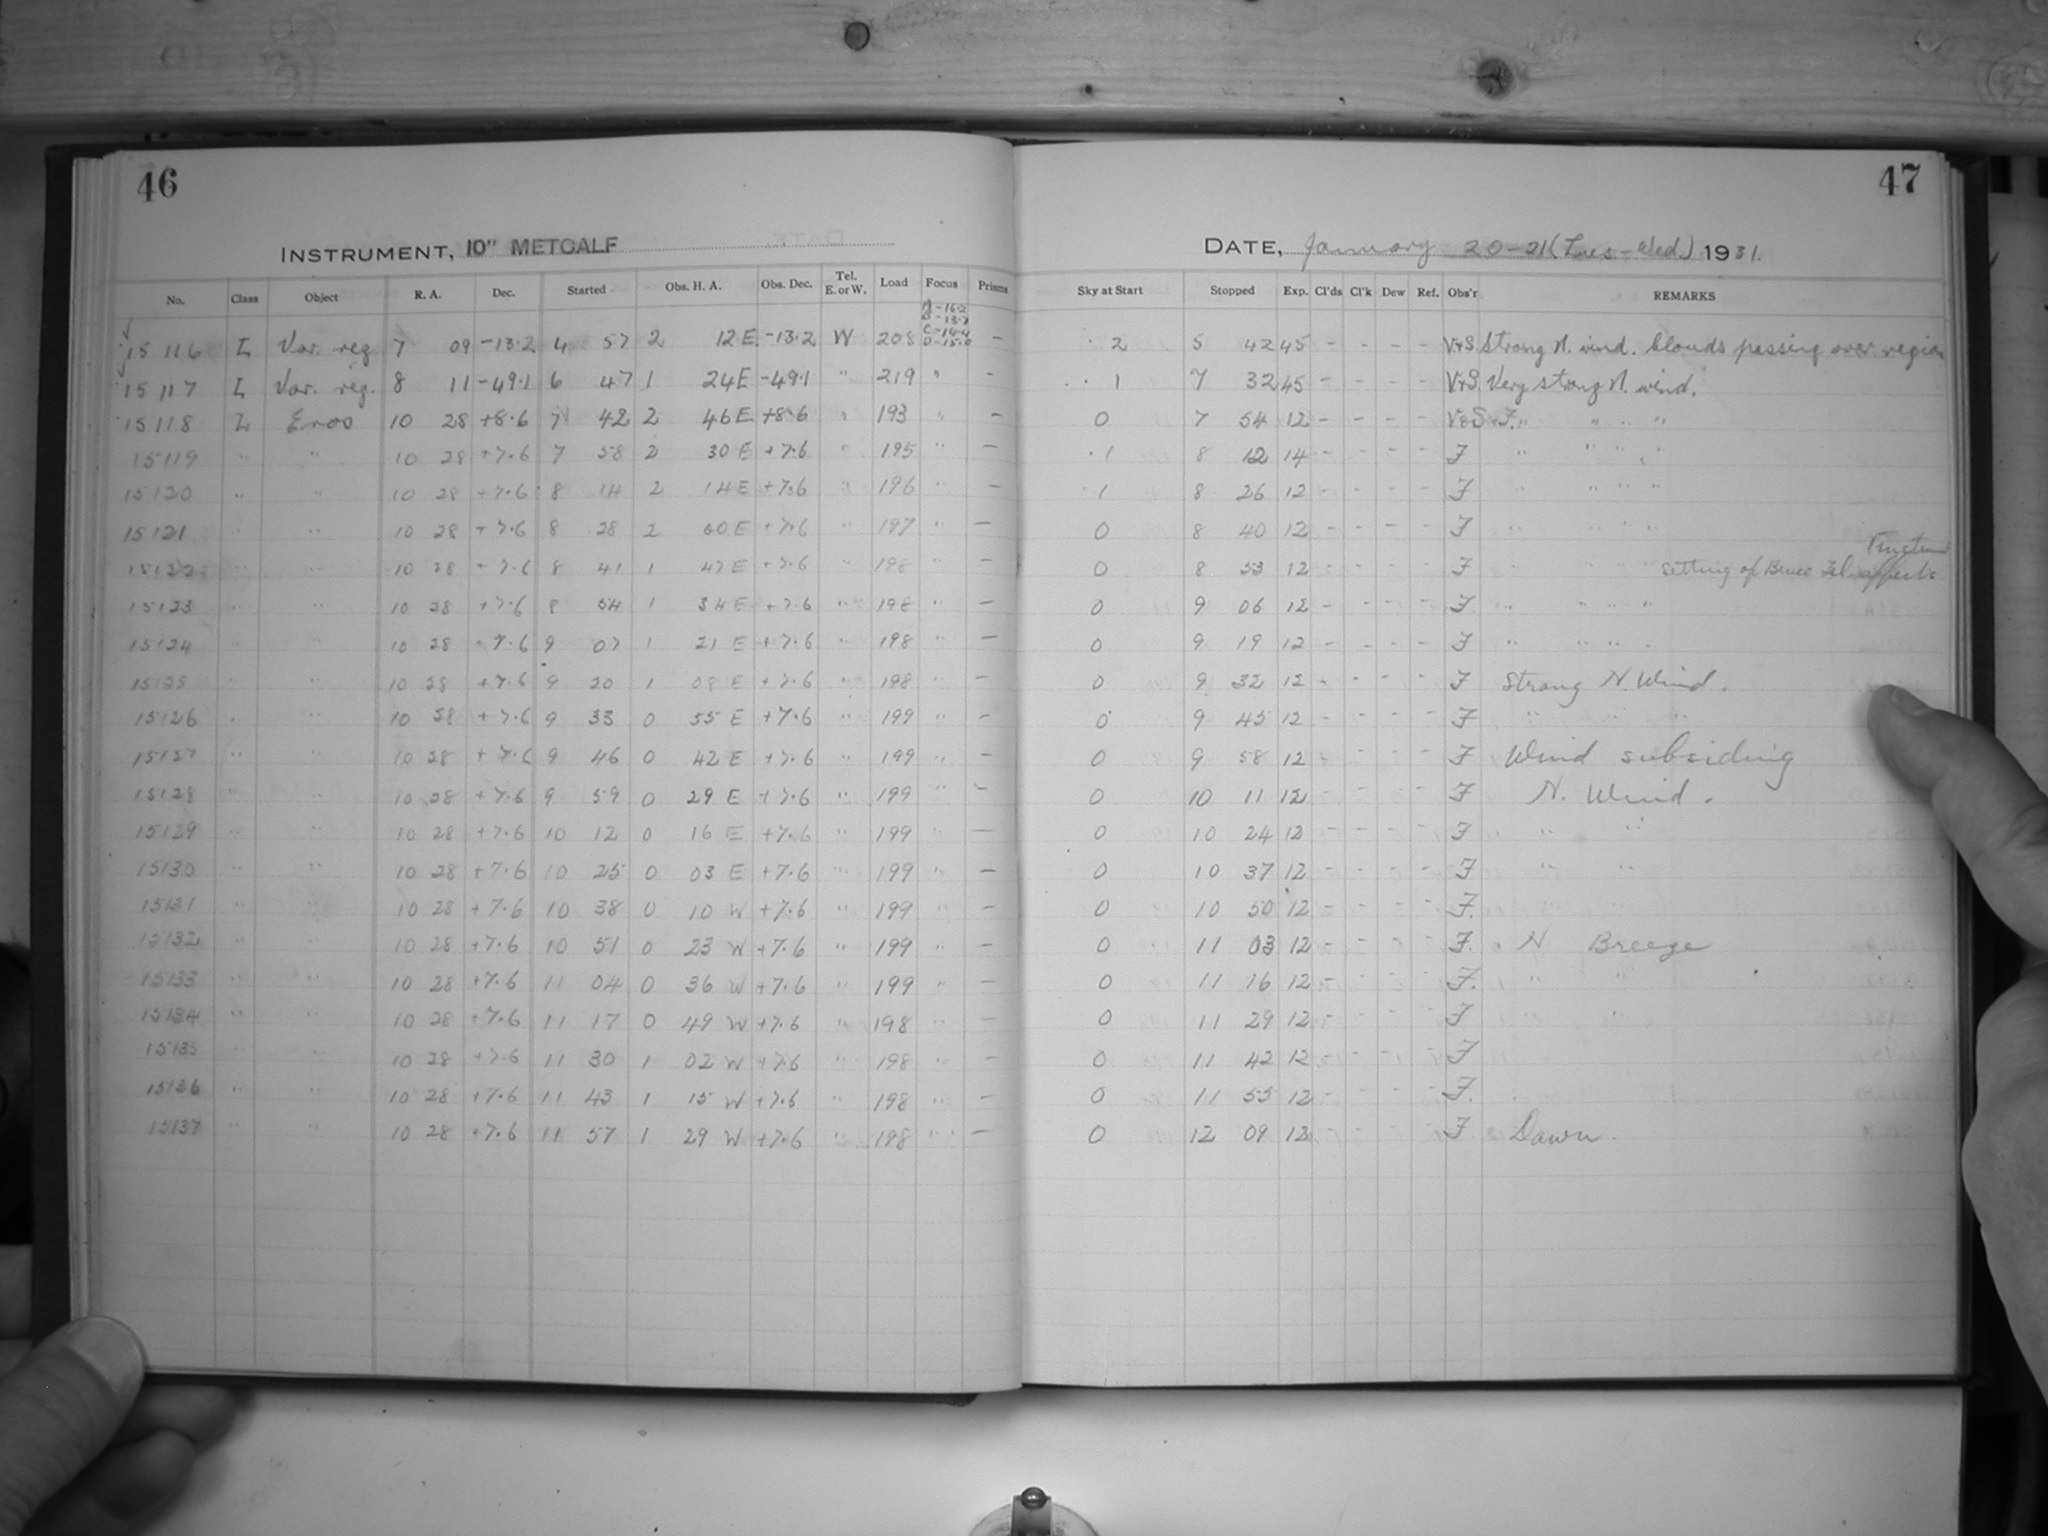 46
INSTRUMENT, 10" METCALF
No. Class Object R. A. Dec. Started Obs. H. A. Obs. Dec. Tel. E. or W. Load Focus Prisms
A-16.2
B-13.7
C-14.4
D-15.0
15116 L Var. reg. 7 09 -13.2 4 57 2 12 E -13.2 W 208 -
15117 L Var. reg. 8 11 -49.1 6 47 1 24 E -49.1 " 219 " -
15118 L Eros 10 28 +8.6 7 42 2 46 E +8.6 " 193 " -
15119 " " 10 28 +7.6 7 58 2 30 E +7.6 " 195 " -
15120 " " 10 28 +7.6 8 14 2 14 E +7.6 " 196 " -
15121 " " 10 28 +7.6 8 28 2 00 E +7.6 " 197 " -
15122 " " 10 28 +7.6 8 41 1 47 E +7.6 " 198 " -
15123 " " 10 28 +7.6 8 54 1 34 E +7.6 " 198 " -
15124 " " 10 28 +7.6 9 07 1 21 E +7.6 " 198 " -
15125 " " 10 28 +7.6 9 20 1 08 E +7.6 " 198 " -
15126 " " 10 28 +7.6 9 33 0 55 E +7.6 " 199 " -
15127 " " 10 28 +7.6 9 46 0 42 E +7.6 " 199 " -
15128 " " 10 28 +7.6 9 59 0 29 E +7.6 " 199 " -
15129 " " 10 28 +7.6 10 12 0 16 E +7.6 " 199 " -
15130 " " 10 28 +7.6 10 25 0 03 E +7.6 " 199 " -
15131 " " 10 28 +7.6 10 38 0 10 W +7.6 " 199 " -
15132 " " 10 28 +7.6 10 51 0 23 W +7.6 " 199 " -
15133 " " 10 28 +7.6 11 04 0 36 W +7.6 " 199 " -
15134 " " 10 28 +7.6 11 17 0 49 W +7.6 " 198 " -
15135 " " 10 28 +7.6 11 30 1 02 W +7.6 " 198 " -
15136 " " 10 28 +7.6 11 43 1 15 W +7.6 " 198 " -
15137 " " 10 28 +7.6 11 57 1 29 W +7.6 " 198 " -
47
DATE, January 20-21 (Tues-Wed.) 1931.
Sky at Start Stopped Exp. Cl'ds Cl'k Dew Ref. Obs'r REMARKS
2 5 42 45 - - - - V+S Strong N. wind. Clouds passing over region
1 7 32 45 - - - - V+S Very strong N. wind.
0 7 54 12 - - - - V&S+F. " " " "
1 8 12 14 - - - - F " " " "
1 8 26 12 - - - - F " " " "
0 8 40 12 - - - - F " " " "
0 8 53 12 - - - - F " " " " setting of Bruce Tel.
0 9 06 12 - - - - F " " " "
0 9 19 12 - - - - F " " " "
0 9 32 12 - - - - F Strong N. Wind.
0 9 45 12 - - - - F " " "
0 9 58 12 - - - - F Wind subsiding
0 10 11 12 - - - - F N. Wind.
0 10 24 12 - - - - F " "
0 10 37 12 - - - - F " "
0 10 50 12 - - - - F. " "
0 11 03 12 - - - - F. N Breeze
0 11 16 12 - - - - F. " "
0 11 29 12 - - - - F " "
0 11 42 12 - - - - F
0 11 55 12 - - - - F.
0 12 09 12 - - - - F Dawn